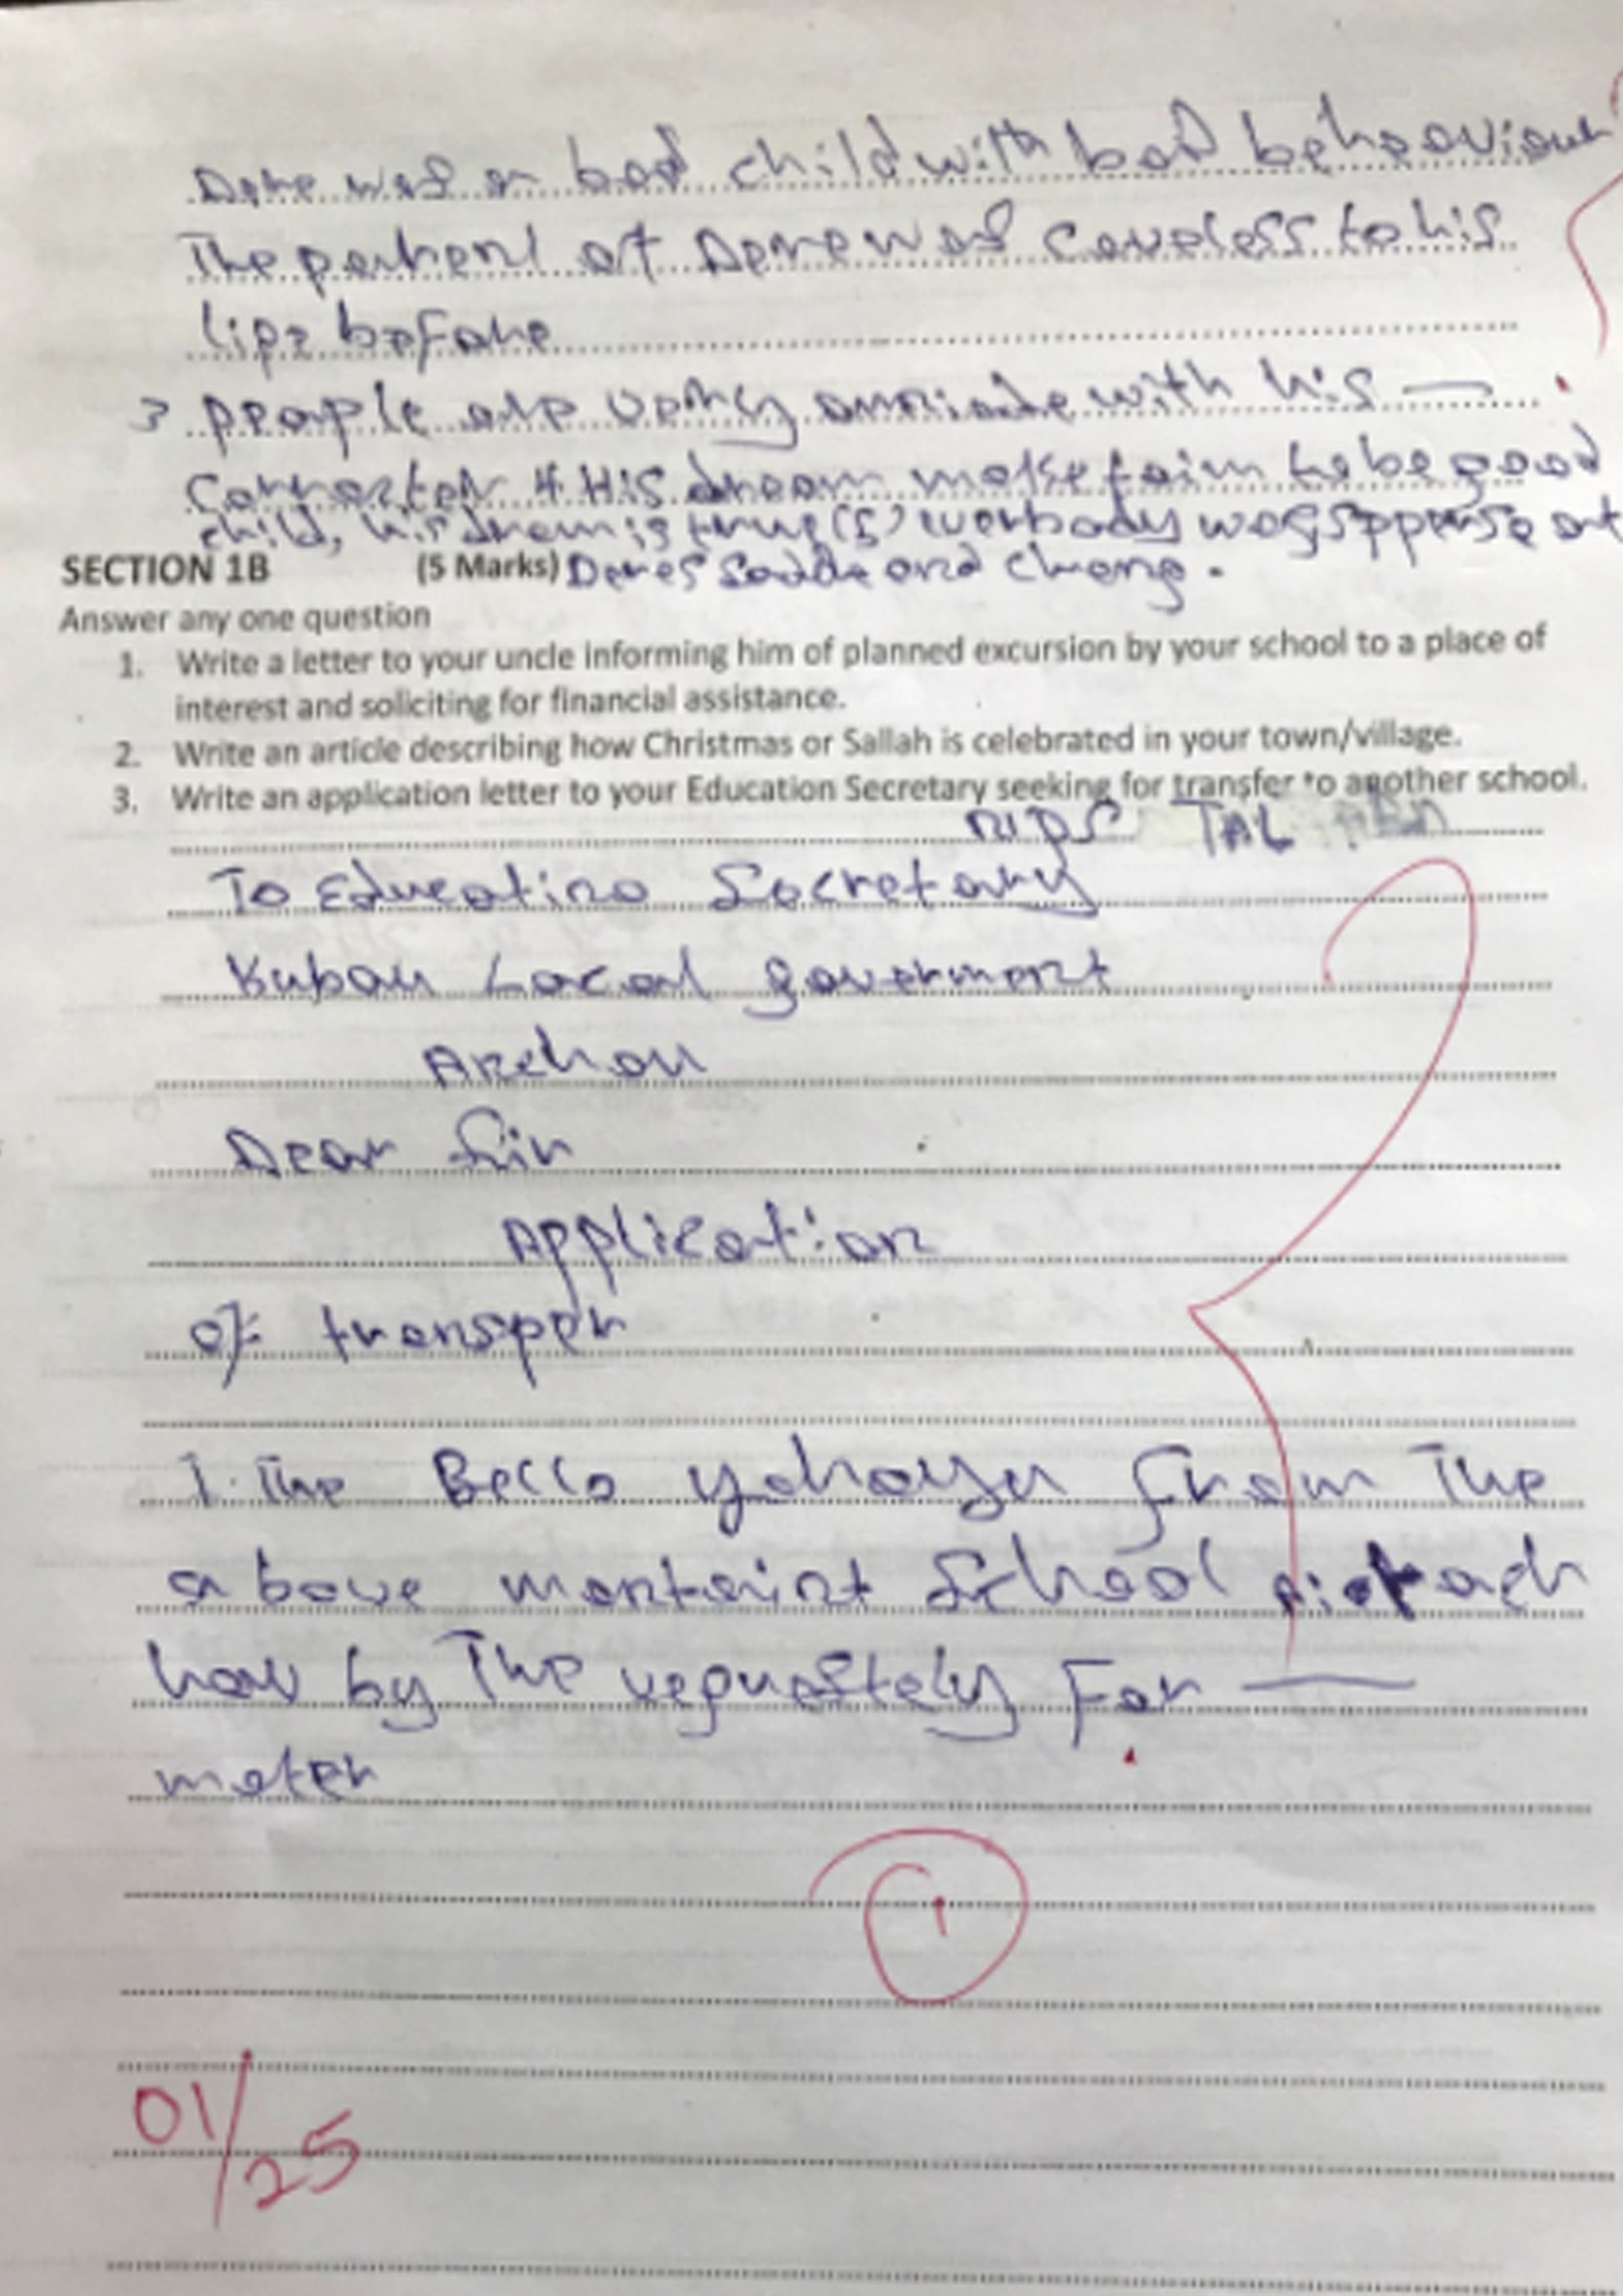 Dere was a bad child with bad behaaviour
The parhent of Dere was careless to his
lipe before
3 people are very with his —
Carracter 4 His dream make faim to be good
child, his dream is true (5) everbody was sppprise at
SECTION 1B (5 Marks) Deres and chang.
Answer any one question
1. Write a letter to your uncle informing him of planned excursion by your school to a place of
interest and soliciting for financial assistance.
2. Write an article describing how Christmas or Sallah is celebrated in your town/village.
3. Write an application letter to your Education Secretary seeking for transfer to another school.
TAL
To Educatino Socretary
Kubau Local goverment
Anchau
Dear Sir
Application
of transper
I. The Bello yahaya from The
above School
by The For —
mater
1
01/25